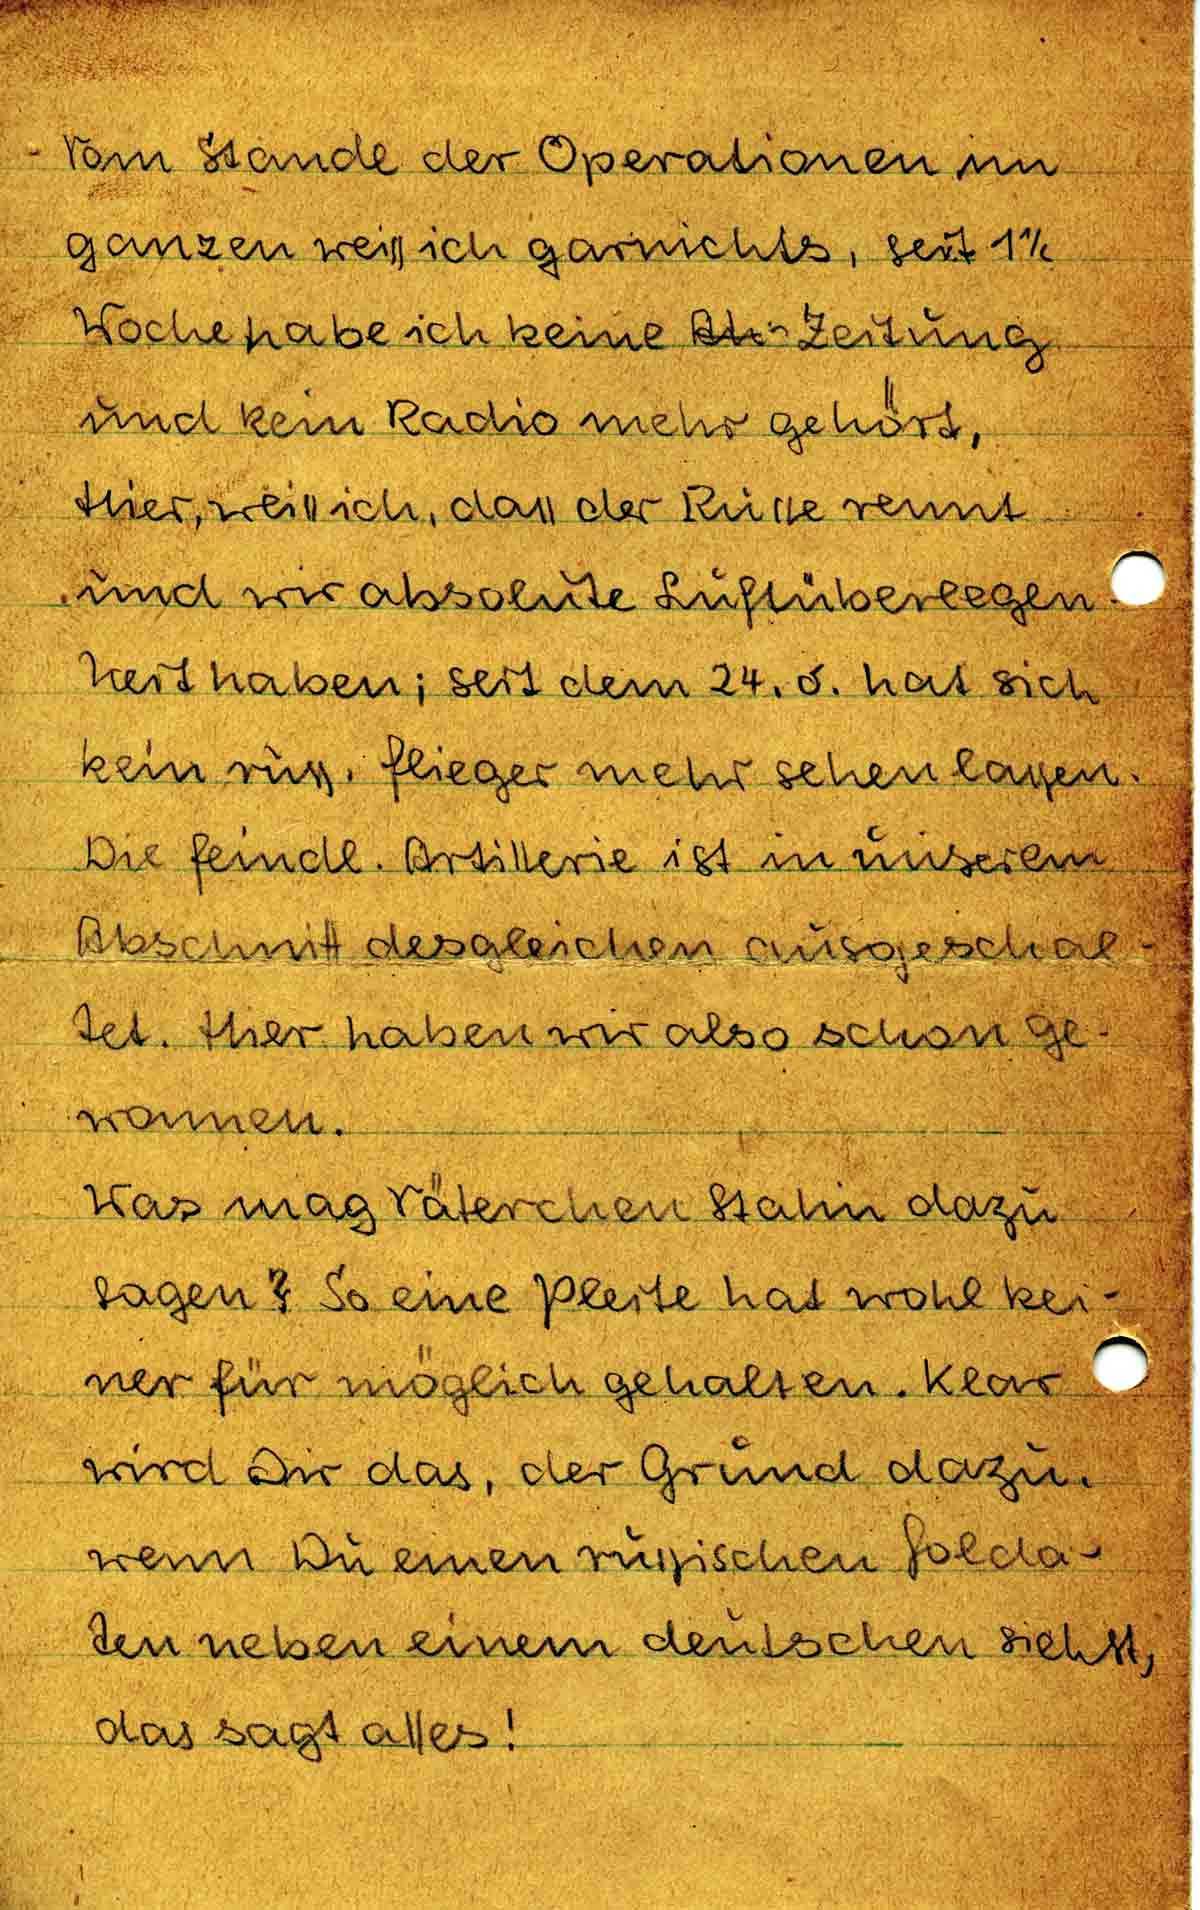 Vom Stande der Operationen im
ganzen weiß ich garnichts, seit 1½
Woche habe ich keine Zeitung
und kein Radio mehr gehört,
Hier, weiß ich, daß der Russe rennt
und wir absolute Luftüberlegen-
heit haben; seit dem 24. 6. hat sich
kein russ. Flieger mehr sehen lassen.
Die feindl. Artillerie ist in unserem
Abschnitt desgleichen ausgeschal-
tet. Hier haben wir also schon ge-
wonnen.
Was mag Väterchen Stalin dazu
sagen? So eine Pleite hat wohl kei-
ner für möglich gehalten. Klar
wird Dir das, der Grund dazu,
wenn Du einen russischen Solda-
ten neben einem deutschen siehst,
das sagt alles!